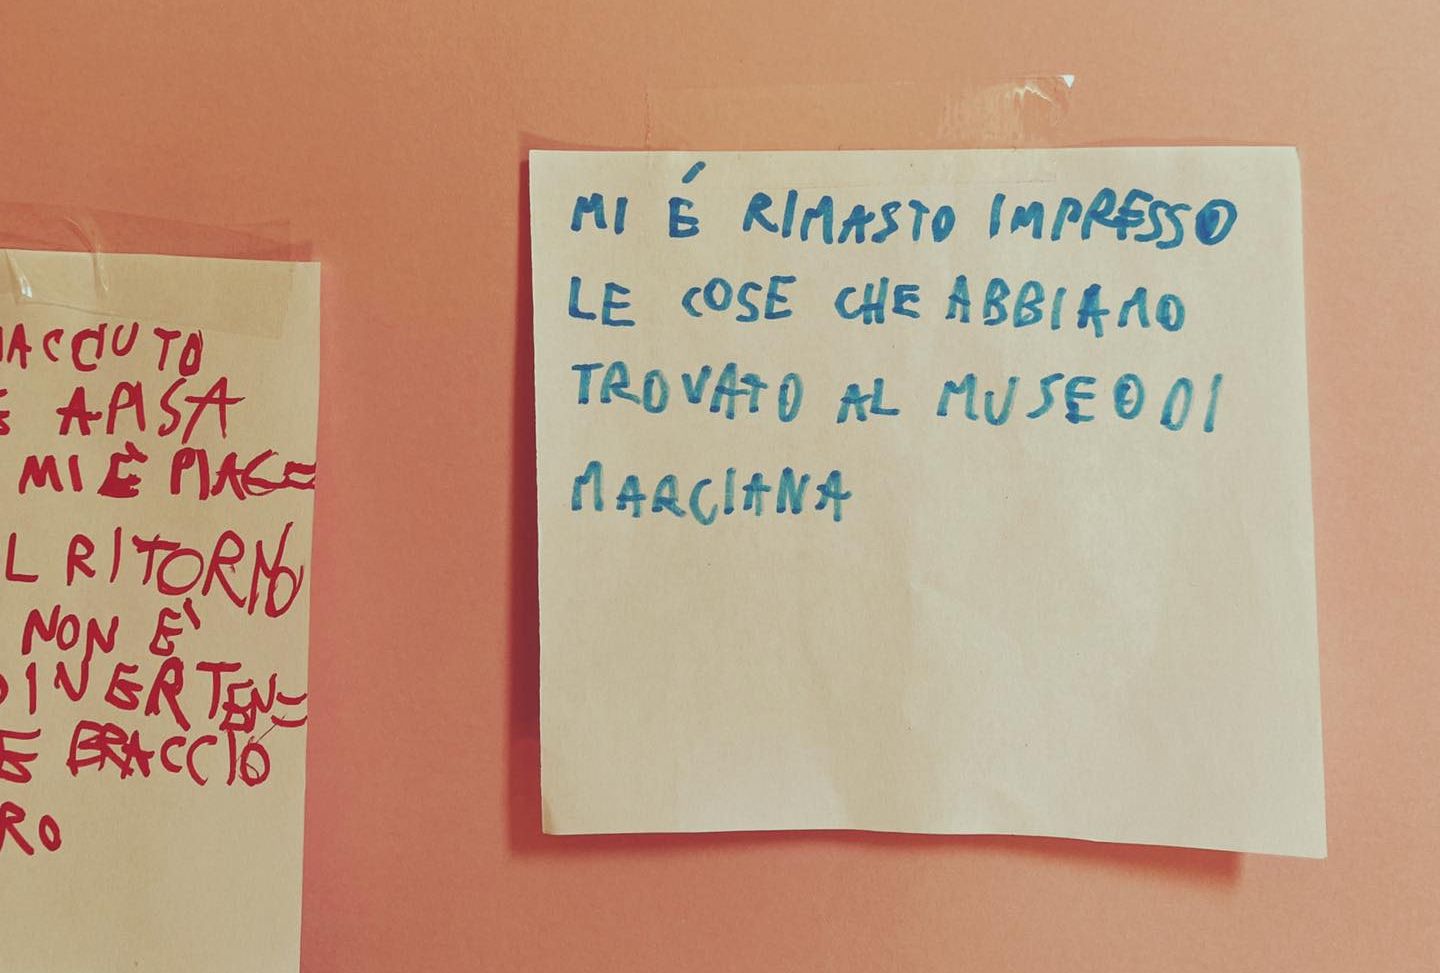 A PISA
MI È PIACE=
L RITORNO
NON E'
DIVERTEN=
E BRACCIO
RO
MI É RIMASTO IMPRESSO
LE COSE CHE ABBIAMO
TROVATO AL MUSEO DI
MARCIANA